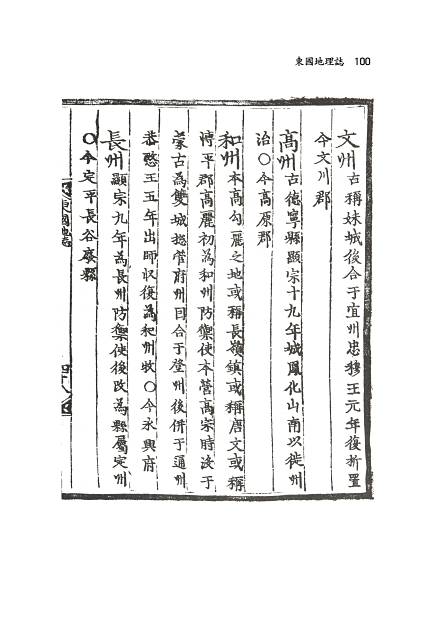 東國地理誌 100
文州古稱妹城後合于宜州忠穆王元年復析置
今文川郡
高州古德寧縣顯宗十九年城鳳化山南以徙州
治○今高原郡
和州本高句麗之地或稱長嶺鎮或稱唐文或稱
愽平郡高麗初為和州防禦使本營高宗時沒于
蒙古為雙城摠管府州囙合于登州後併于通州
恭愍王五年出師收復為和州牧○今永興府
長州顯宗九年為長州防禦使後改為縣屬定州
○今定平長谷廢縣
東國地誌
四十八